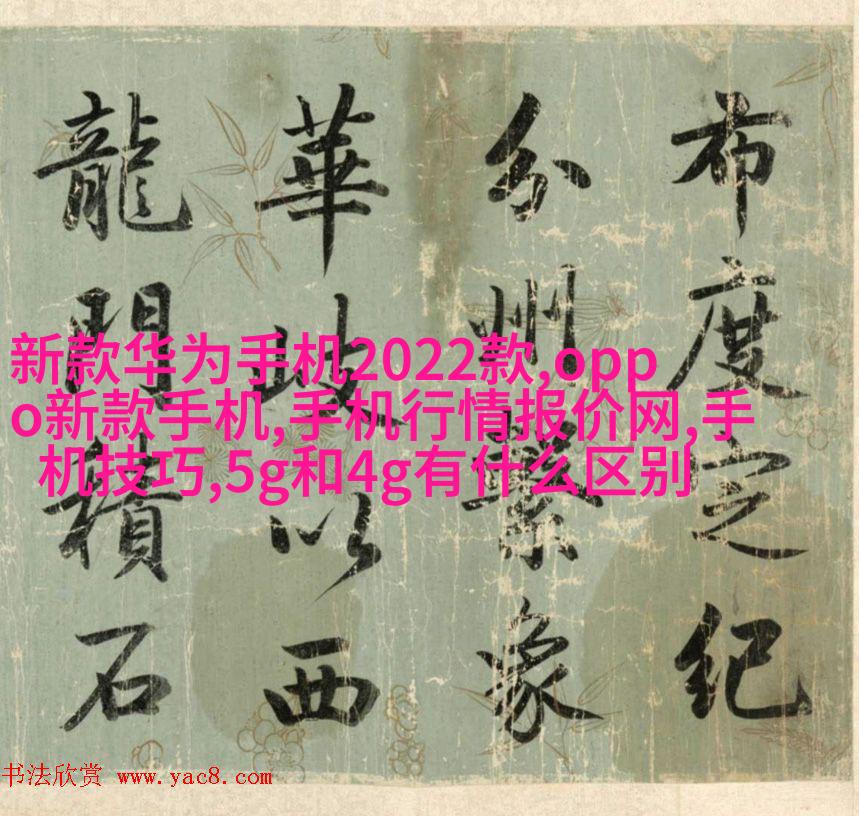 布度定紀
分州繫象
華岐以西
龍門積石
新款华为手机2022款,opp
o新款手机,手机行情报价网,手
机技巧,5g和4g有什么区别
书法欣赏 www.yac8.com